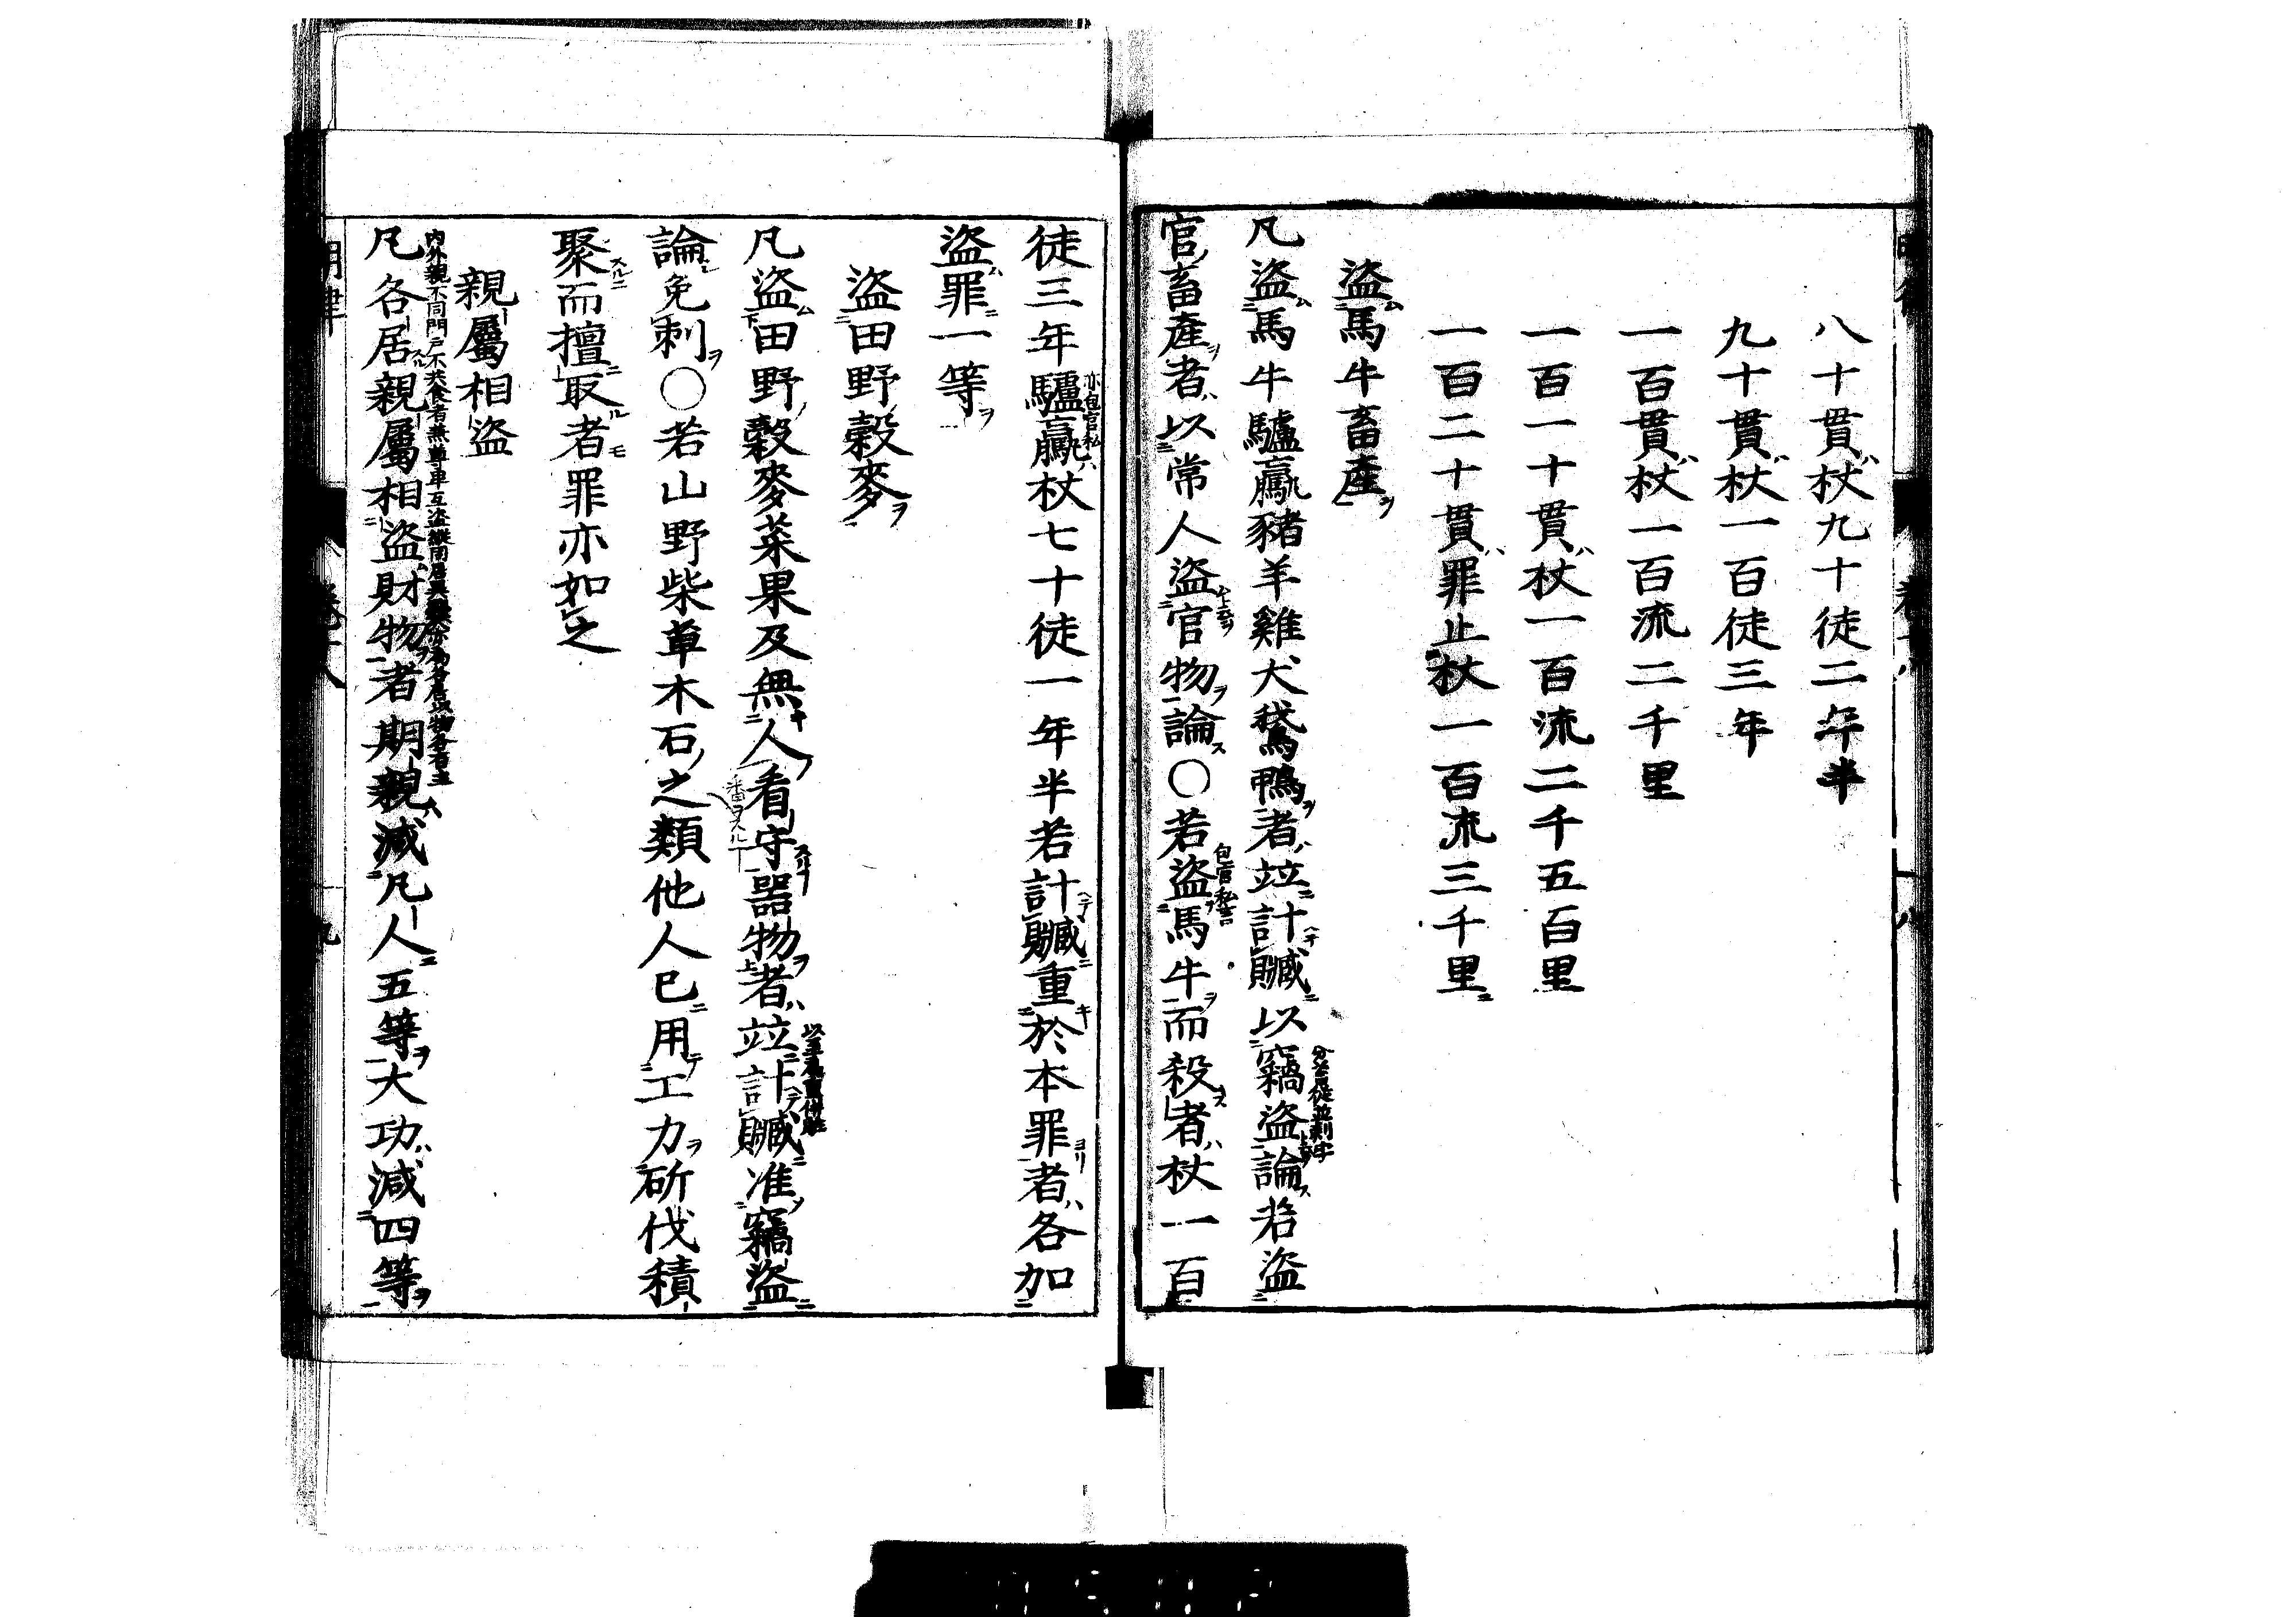 八十貫杖九十徒二年半
九十貫杖一百徒三年
一百貫杖一百流二千里
一百一十貫杖一百流二千五百里
一百二十貫罪止杖一百流三千里
盜馬牛畜產
凡盜馬牛驢驘豬羊雞犬鵞鴨者竝計贓以竊盜論若盜
官畜產者以常人盜官物論〇若盜馬牛而殺者杖一百
徒三年驢驘杖七十徒一年半若計贓重於本罪者各加
盜罪一等
盜田野穀麥
凡盜田野穀麥菜果及無人看守器物者竝計贓准竊盜
論免刺〇若山野柴草木石之類他人已用工力斫伐積
聚而擅取者罪亦如之
親屬相盜
內外親不同門戶不共食者無尊卑互盜
凡各居親屬相盜財物者期親減凡人五等大功減四等